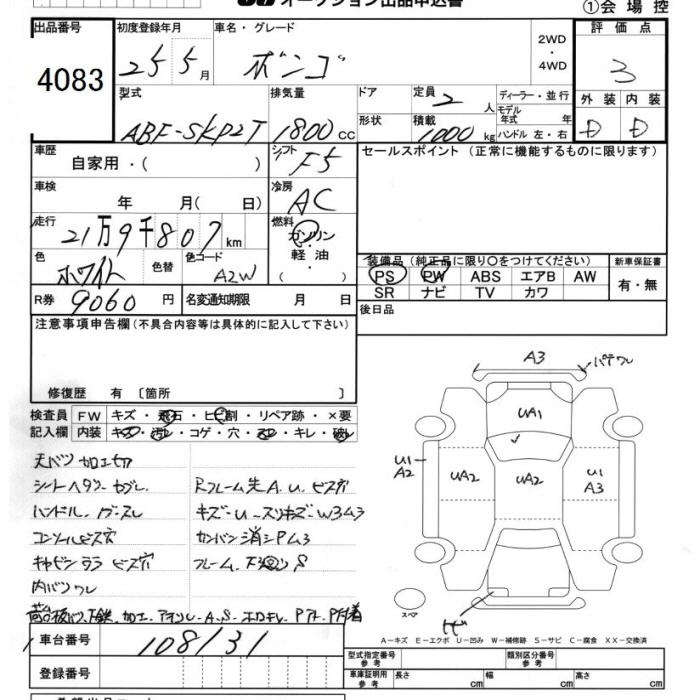 オークション出品申込書
①会場控
出品番号
4083
初度登録年月
25年5月
車名・グレード
ボンゴ
2WD
・
4WD
評価点
3
外装 内装
D D
型式
ABF-SKP2T
排気量
1800cc
ドア
形状
定員
2人
積載
1000kg
ディーラー・並行
モデル年式 年
ハンドル 左・右
車歴
自家用・( )
シフト
F5
セールスポイント (正常に機能するものに限ります)
車検
年 月( 日)
冷房
AC
走行
21万9千807km
燃料
ガソリン
・軽油・
( )
色
ホワイト
色替
色コード
A2W
装備品 (純正品に限り○をつけてください)
PS PW ABS エアB AW
SR ナビ TV カワ
新車保証書
有・無
R券 9060円
名変通知期限 月 日
後日品
注意事項申告欄 (不具合内容等は具体的に記入して下さい)
修復歴 有 〔箇所 〕
検査員記入欄
FW キズ・飛石・ヒビ割・リペア跡・×要
内装 キズ・汚レ・コゲ・穴・スレ・キレ・破レ
天バリ加工切
ハンドル
コンソルビス穴
ビス穴
内バリワレ
Rフレーム先A.U.ビス穴
キズ-U-スリキズ-W3ム3
カンバン消シPム3
フレーム.下廻りS
A3
バテワレ
UA1
U1
A2
UA2
UA2
U1
A3
スペア
A-キズ E-エクボ U-凹み W-補修跡 S-サビ C-腐食 XX-交換済
車台番号
108131
登録番号
型式指定番号
参考
類別区分番号
参考
車庫証明用
参考
長さ cm
幅 cm
高さ cm